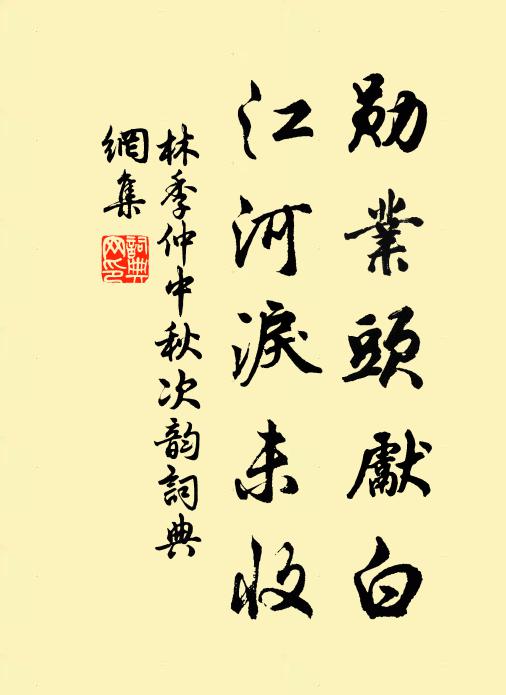 勋業頭獻白
江河淚未收
林季仲中秋次韵詞典
網集
詞典
网印